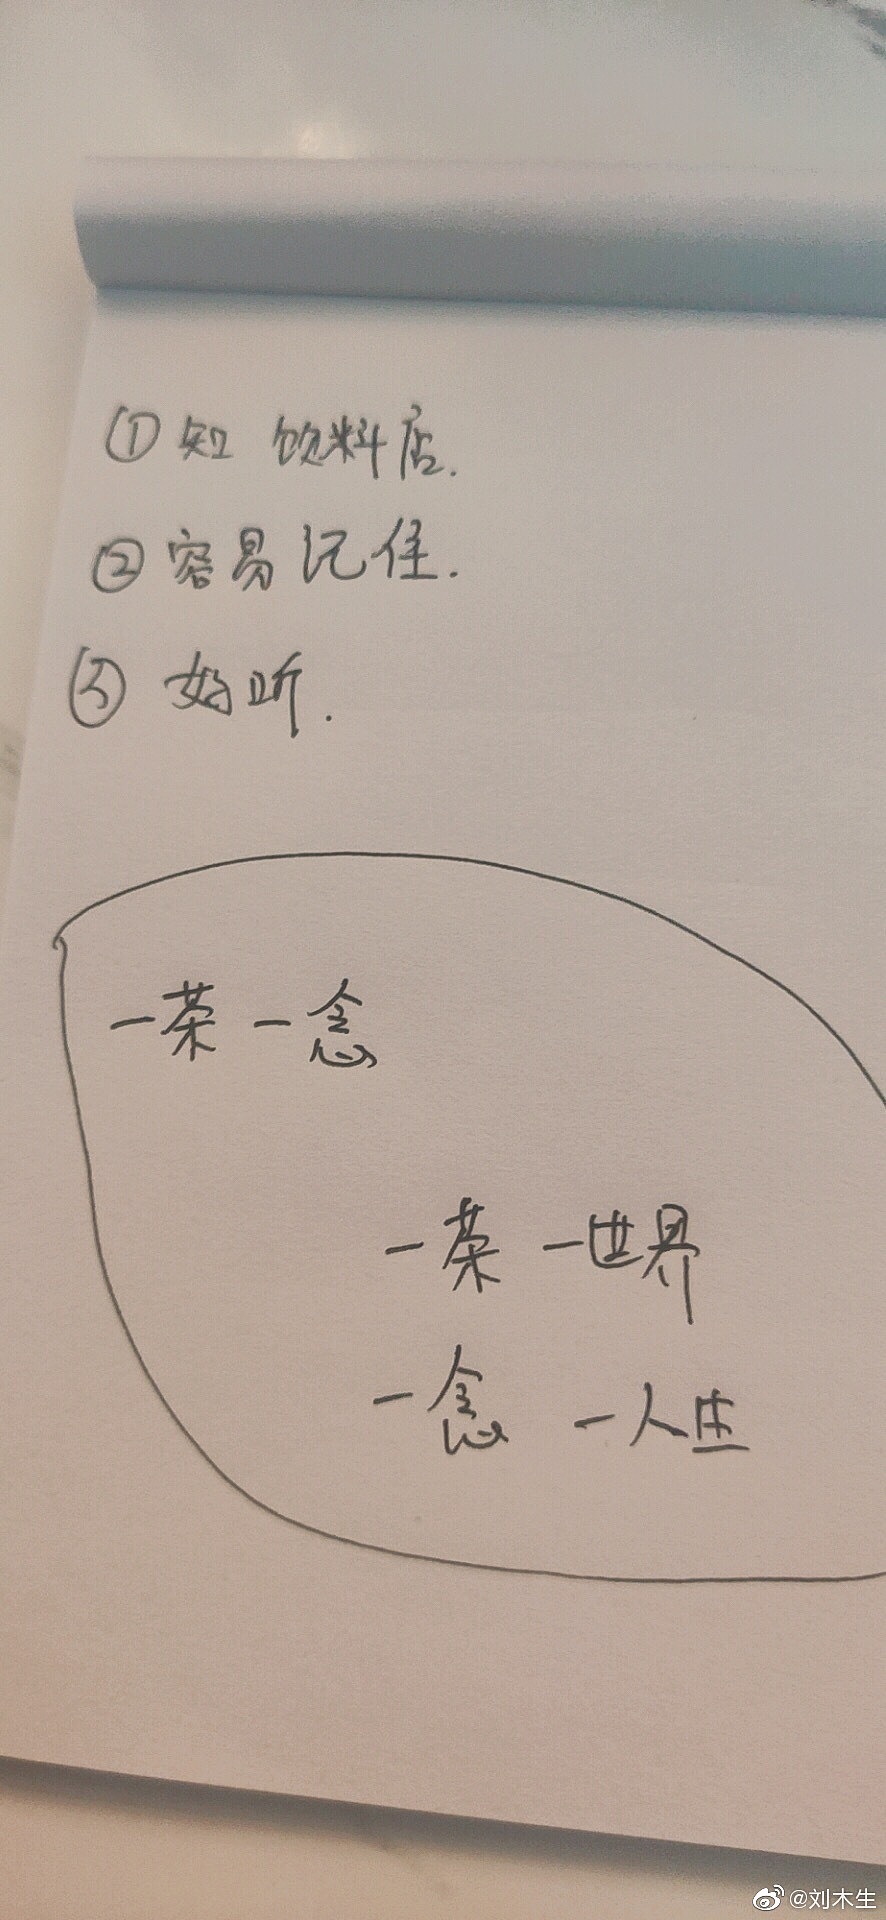 ① 知 饮料店.
② 容易记住.
③ 好听.
一茶 一念
一茶 一世界
一念 一人生
@刘木生